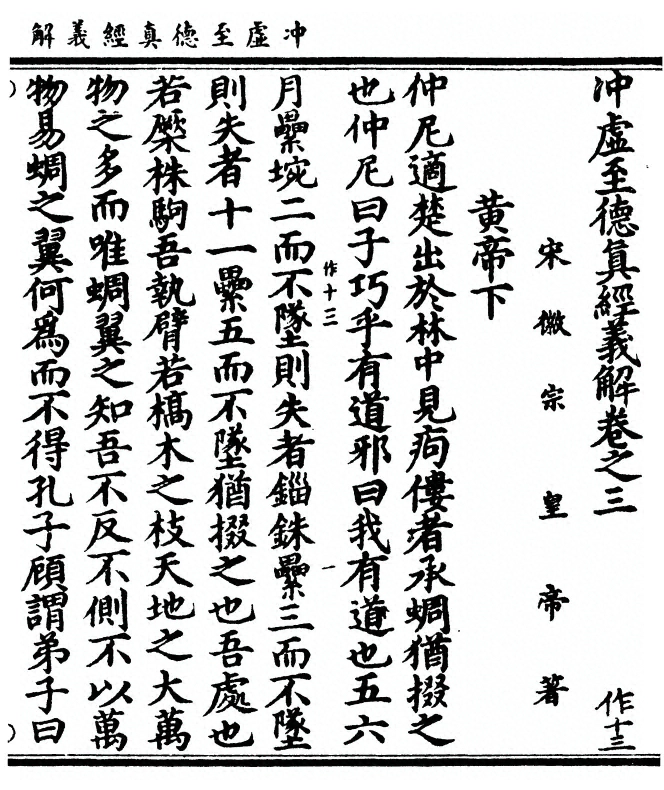 冲虛至德真經義解
冲虛至德真經義解卷之三 作十三
宋徽宗皇帝著
黄帝下
仲尼適楚出於林中見痀僂者承蜩猶掇之
也仲尼曰子巧乎有道邪曰我有道也五六
作十三 一
月纍垸二而不墜則失者錙銖纍三而不墜
則失者十一纍五而不墜猶掇之也吾處也
若橜株駒吾執臂若槁木之枝天地之大萬
物之多而唯蜩翼之知吾不反不側不以萬
物易蜩之翼何爲而不得孔子顧謂弟子曰